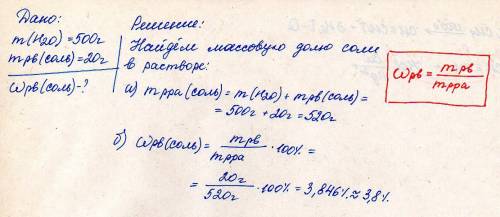 Дано:
m(H2O)=500г
mрв(соль)=20г
ωрв(соль)-?
Решение:
Найдём массовую долю соли
в растворе:
а) mрра(соль)=m(H2O)+mрв(соль)=
=500г+20г=520г
б) ωрв(соль)= mрв/mрра ·100%=
= 20г/520г ·100%=3,846%≈3,8%
ωрв = mрв/mрра